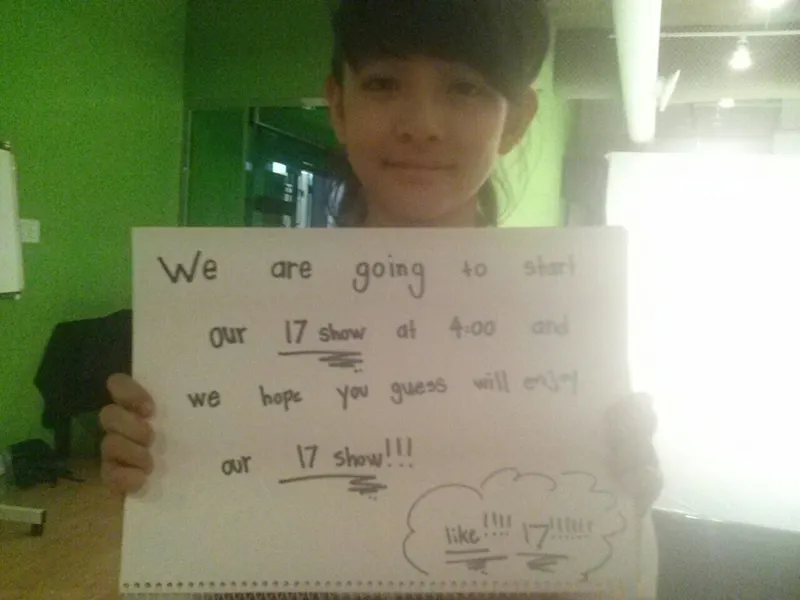 We are going to start
our 17 show at 4:00 and
we hope you guess will enjoy
our 17 show!!!
like!!!! 17!!!!!!